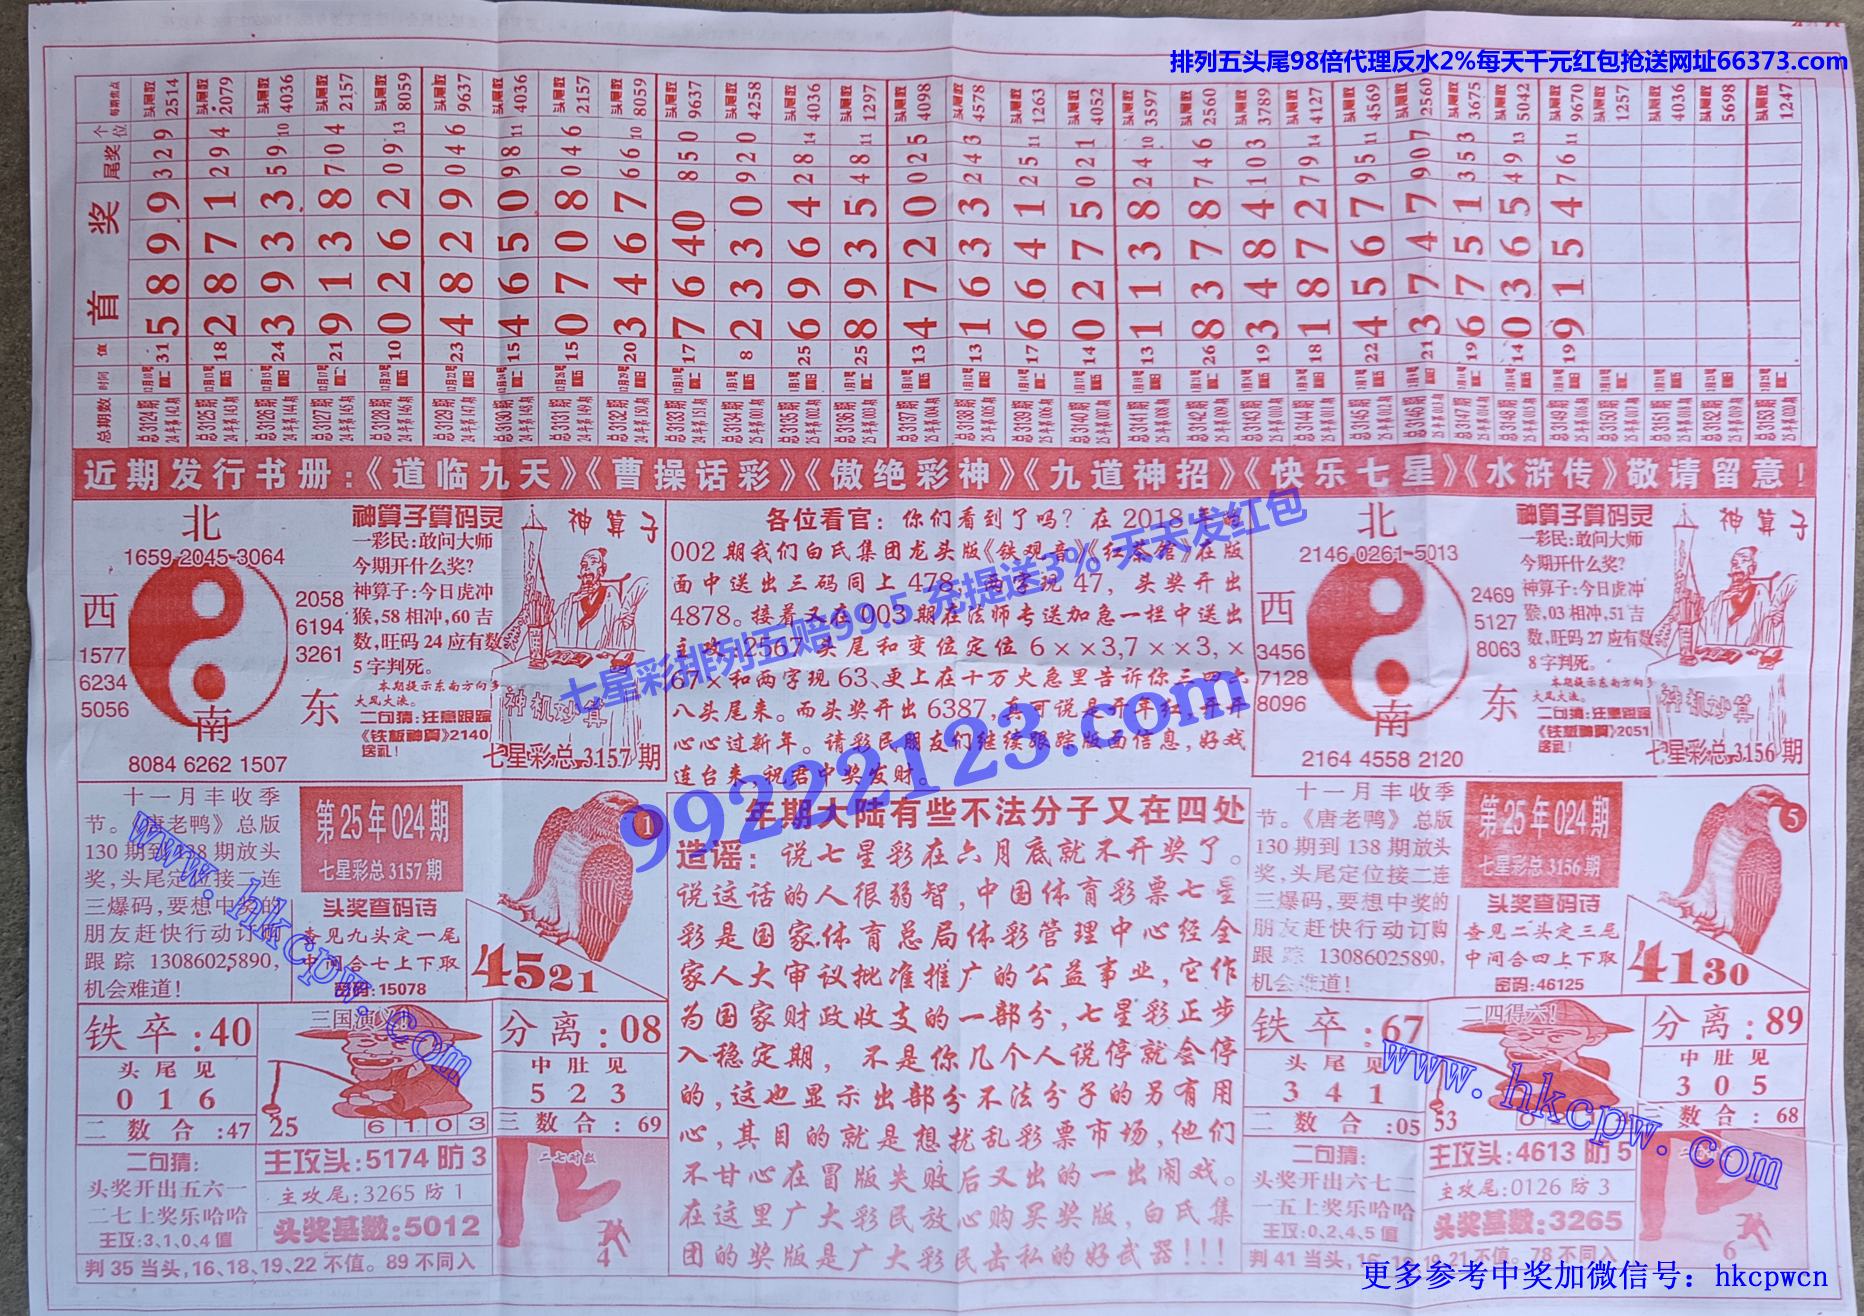 排列五头尾98倍代理反水2%每天千元红包抢送网址66373.com
每期焦点 头尾数 2514 头尾数 2079 头尾数 4036 头尾数 2157 头尾数 8059 头尾数 9637 头尾数 4036 头尾数 2157 头尾数 8059 头尾数 9637 头尾数 4258 头尾数 4036 头尾数 1297 头尾数 4098 头尾数 4578 头尾数 1263 头尾数 4052 头尾数 3597 头尾数 2560 头尾数 3789 头尾数 4127 头尾数 4569 头尾数 2560 头尾数 3675 头尾数 5042 头尾数 9670 头尾数 1257 头尾数 4036 头尾数 5698 头尾数 1247
尾奖 个位 329 294 59 10 704 09 13 046 98 11 046 66 10 850 920 28 14 48 11 025 243 25 11 021 24 10 746 103 79 14 95 11 907 353 49 13 76 11
首奖 5899 2871 3933 9138 0262 4829 4650 0708 3467 7640 2330 6964 8935 4720 1633 6641 0275 1138 8378 3484 1872 4567 3747 6751 0365 9154
值 31 18 24 21 10 23 15 15 20 17 8 25 25 13 13 17 14 13 26 19 18 22 21 19 14 19
时间
总期数 总3124期 24年第142期 总3125期 24年第143期 总3126期 24年第144期 总3127期 24年第145期 总3128期 24年第146期 总3129期 24年第147期 总3130期 24年第148期 总3131期 24年第149期 总3132期 24年第150期 总3133期 24年第151期 总3134期 25年第001期 总3135期 25年第002期 总3136期 25年第003期 总3137期 25年第004期 总3138期 25年第005期 总3139期 25年第006期 总3140期 25年第007期 总3141期 25年第008期 总3142期 总3143期 25年第010期 总3144期 25年第011期 总3145期 25年第012期 总3146期 25年第013期 总3147期 25年第014期 总3148期 25年第015期 总3149期 25年第016期 总3150期 25年第017期 总3151期 25年第018期 总3152期 25年第019期 总3153期 25年第020期
近期发行书册:《道临九天》《曹操话彩》《傲绝彩神》《九道神招》《快乐七星》《水浒传》敬请留意!
北
1659 2045 3064
西
2058
6194
3261
1577
6234
5056
东
南
8084 6262 1507
神算子算码灵
一彩民:敢问大师
今期开什么奖?
神算子:今日虎冲
猴,58相冲,60吉
数,旺码24应有数
5字判死。
本期提示东南方向多
大风大浪。
二句猜:注意跟踪
《铁板神算》2140
送礼!
神算子
神机妙算
七星彩总3157期
各位看官:你们看到了吗?在2018年的
002期我们白氏集团龙头版《铁观音》《红茶馆》在版
面中送出三码同上478,两字现47,头奖开出
4878。接着又在003期在法师专送加急一栏中送出
主攻:2567头尾和变位定位6××3,7××3,×
67×和两字现63、更上在十万火急里告诉你三四六
八头尾来。而头奖开出6387,真可说是开年红,开开
心心过新年。请彩民朋友们继续跟踪版面信息,好戏
连台来,祝君中奖发财。
北
2146 0261 5013
西
2469
5127
8063
3456
7128
8096
东
南
2164 4558 2120
神算子算码灵
一彩民:敢问大师
今期开什么奖?
神算子:今日虎冲
猴,03相冲,51吉
数,旺码27应有数
8字判死。
本期提示东南方向多
大风大浪。
二句猜:注意跟踪
《铁板神算》2051
送礼!
神算子
神机妙算
七星彩总3156期
七星彩排列五赔995 充提送3% 天天发红包
99222123.com
十一月丰收季
节。《唐老鸭》总版
130期到138期放头
奖,头尾定位接二连
三爆码,要想中奖的
朋友赶快行动订购
跟踪13086025890,
机会难道!
第25年024期
七星彩总3157期
头奖查码诗
查见九头定一尾
中间合七上下取
密码:15078
1
4521
年期大陆有些不法分子又在四处
造谣:说七星彩在六月底就不开奖了。
说这话的人很弱智,中国体育彩票七星
彩是国家体育总局体彩管理中心经全
家人大审议批准推广的公益事业,它作
为国家财政收支的一部分,七星彩正步
入稳定期,不是你几个人说停就会停
的,这也显示出部分不法分子的另有用
心,其目的就是想扰乱彩票市场,他们
不甘心在冒版失败后又出的一出闹戏。
在这里广大彩民放心购买奖版,白氏集
团的奖版是广大彩民击私的好武器!!!
十一月丰收季
节。《唐老鸭》总版
130期到138期放头
奖,头尾定位接二连
三爆码,要想中奖的
朋友赶快行动订购
跟踪13086025890,
机会难道!
第25年024期
七星彩总3156期
头奖查码诗
查见二头定三尾
中间合四上下取
密码:46125
5
4130
www.hkcpw.com
铁卒:40
头尾见
016
二数合:47
三国演义!
25
6103
分离:08
中肚见
523
三数合:69
二句猜:
头奖开出五六一
二七上奖乐哈哈
主攻:3,1,0,4值
主攻头:5174防3
主攻尾:3265防1
头奖基数:5012
二七对数
4
判35当头,16、18、19、22不值。89不同入
铁卒:67
头尾见
341
二数合:05
二四得六!
53
分离:89
中肚见
305
三数合:68
www.hkcpw.com
二句猜:
头奖开出六七二
一五上奖乐哈哈
主攻:0,2,4,5值
主攻头:4613防5
主攻尾:0126防3
头奖基数:3265
6
判41当头,16、18、19、21不值。78不同入
更多参考中奖加微信号:hkcpwcn